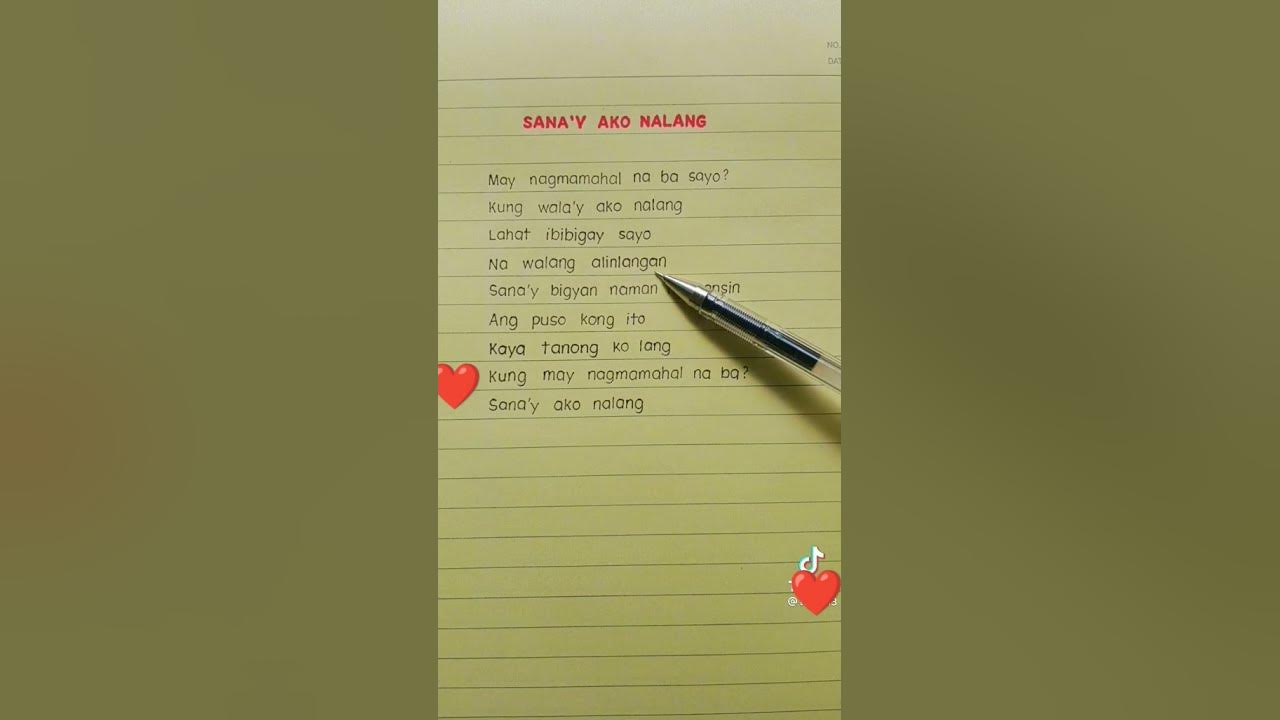 NO.
DAT
SANA'Y AKO NALANG
May nagmamahal na ba sayo?
Kung wala'y ako nalang
Lahat ibibigay sayo
Na walang alinlangan
Sana'y bigyan naman
Ang puso kong ito
Kaya tanong ko lang
Kung may nagmamahal na ba?
Sana'y ako nalang